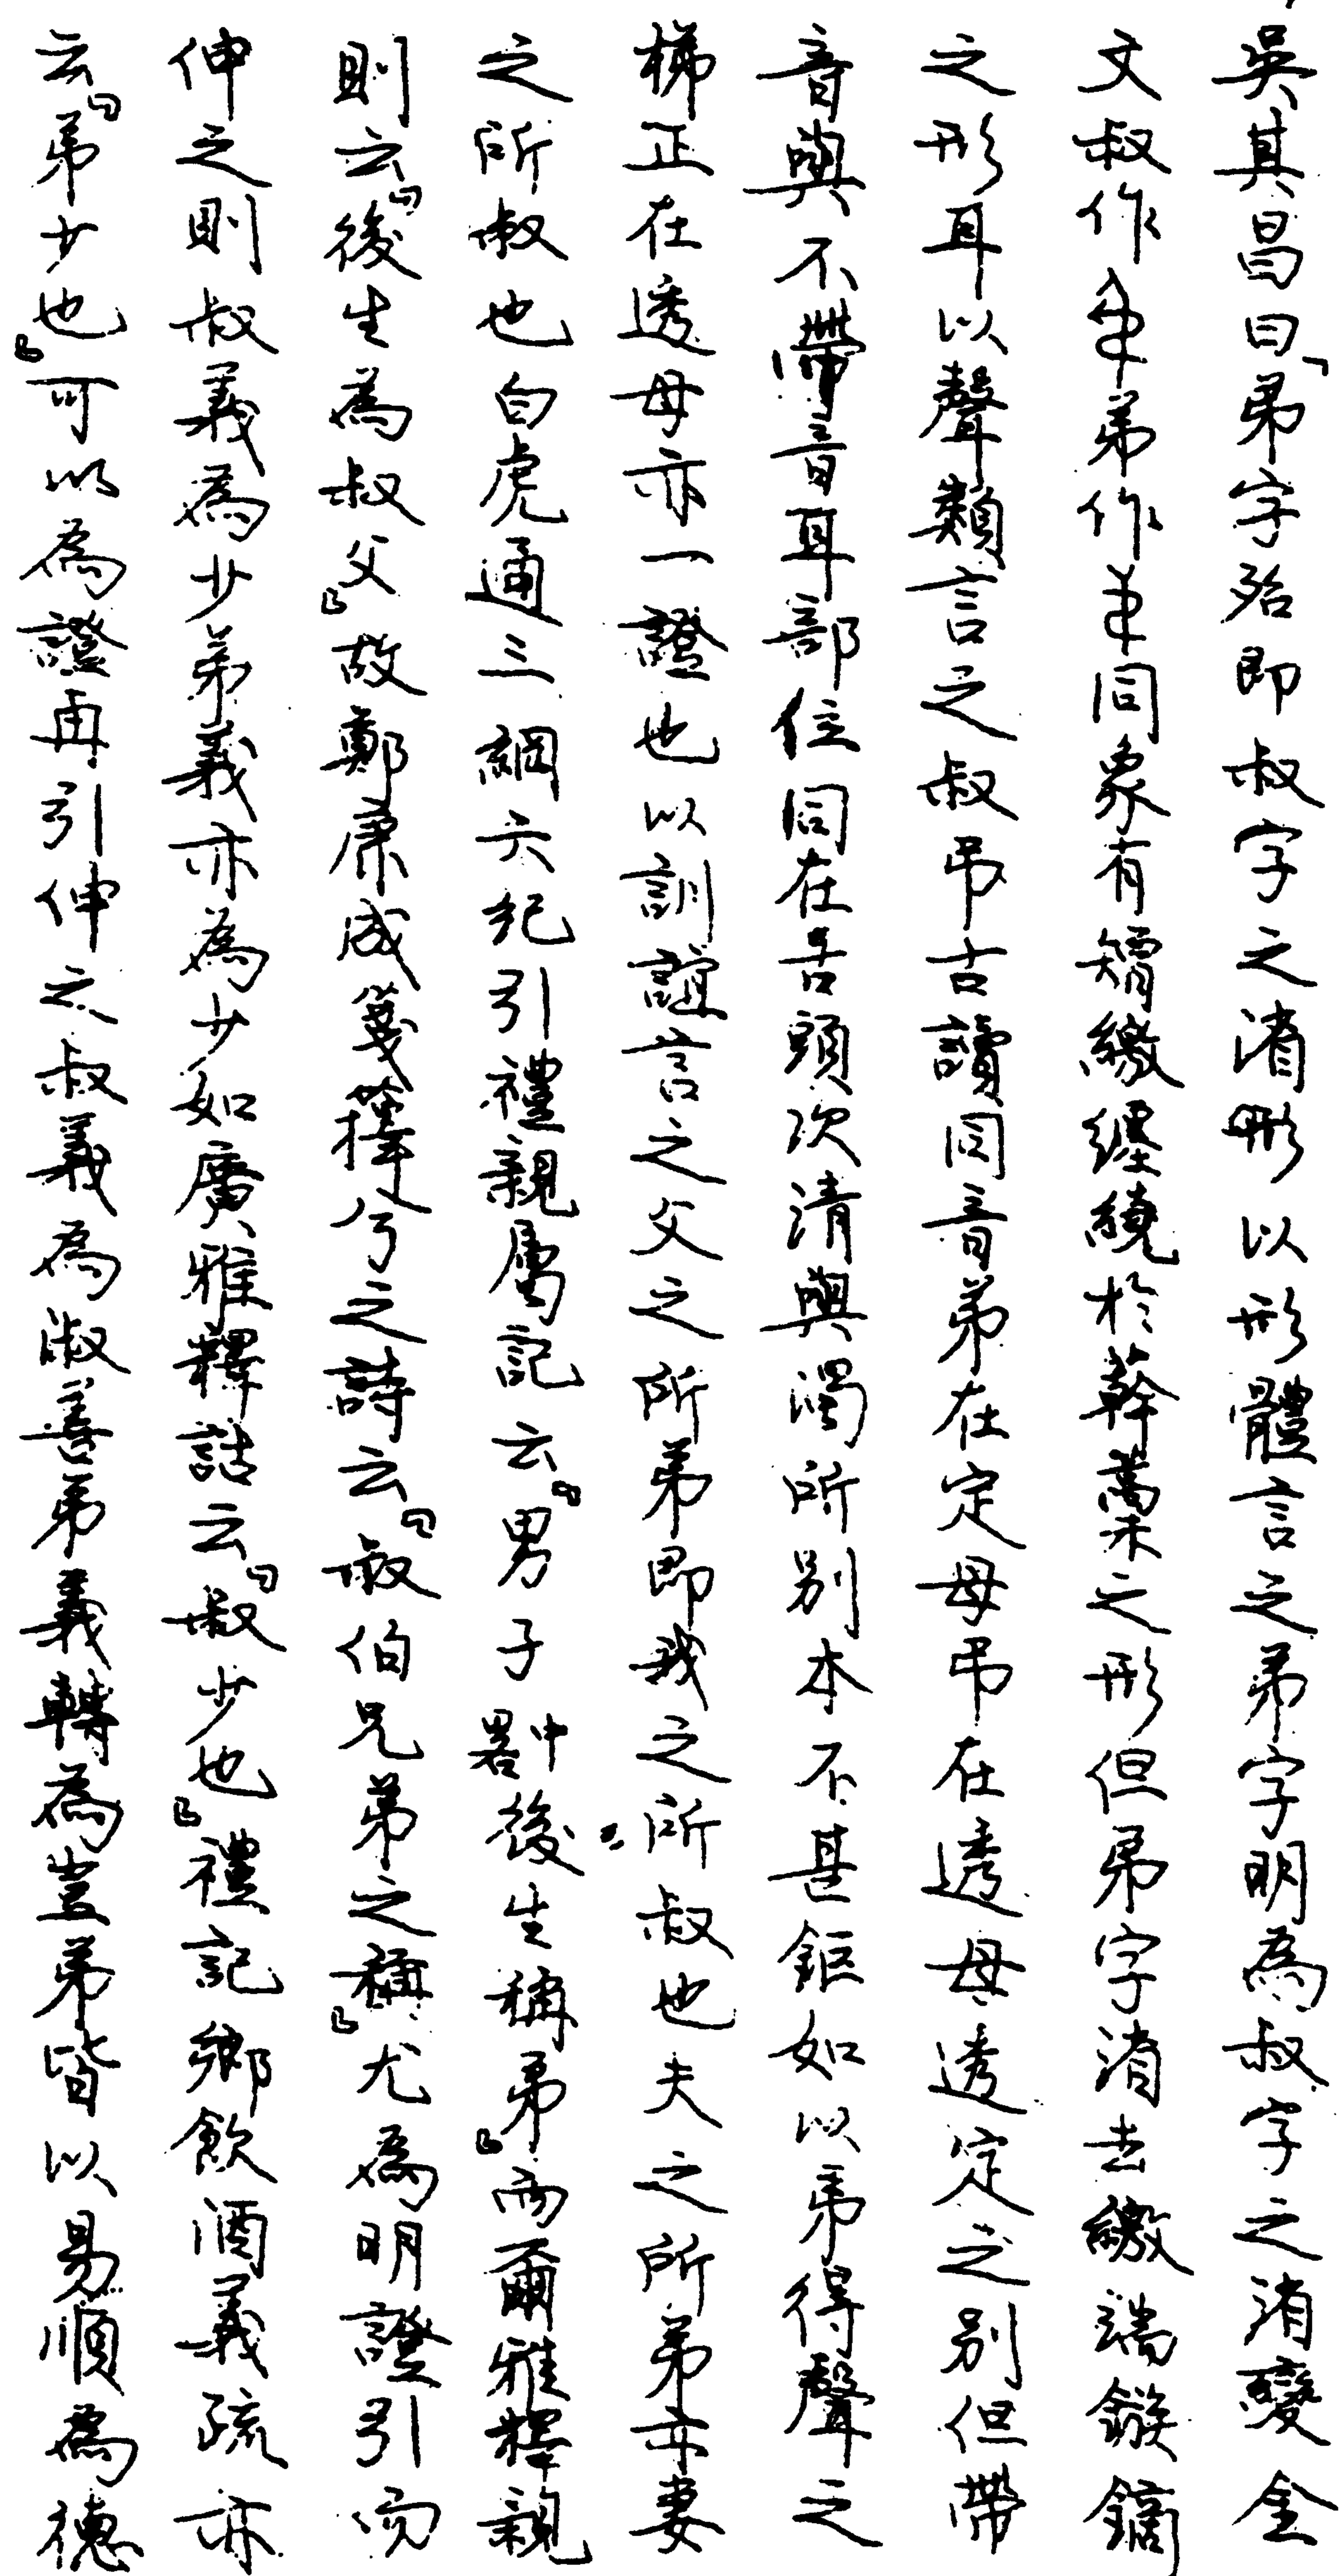 吳其昌曰「弟字殆即叔字之渻形以形體言之弟字明為叔字之渻變金
文叔作弟作同象有矰繳纏繞於榦藁之形但弟字渻去繳端鏃鏑
之形耳以聲類言之叔弔古讀同音弟在定母弔在透母透定之別但帶
音與不帶音耳部位同在舌頭次清與濁所別本不甚鉅如以弟得聲之
梯正在透母亦一證也以訓誼言之父之所弟即我之所叔也夫之所弟亦妻
之所叔也白虎通三綱六紀引禮親屬記云『男子中畧後生稱弟』而爾雅釋親
則云『後生為叔父』故鄭康成箋蘀兮之詩云『叔伯兄弟之稱』尤為明證引而
伸之則叔義為少弟義亦為少如廣雅釋詁云『叔少也』禮記鄉飲酒義疏亦
云『弟少也』可以為證再引伸之叔義為淑善弟義轉為豈弟皆以易順為德